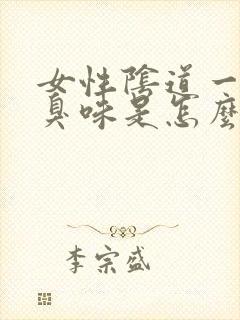 女性陰道一
臭味是怎麼
李宗盛